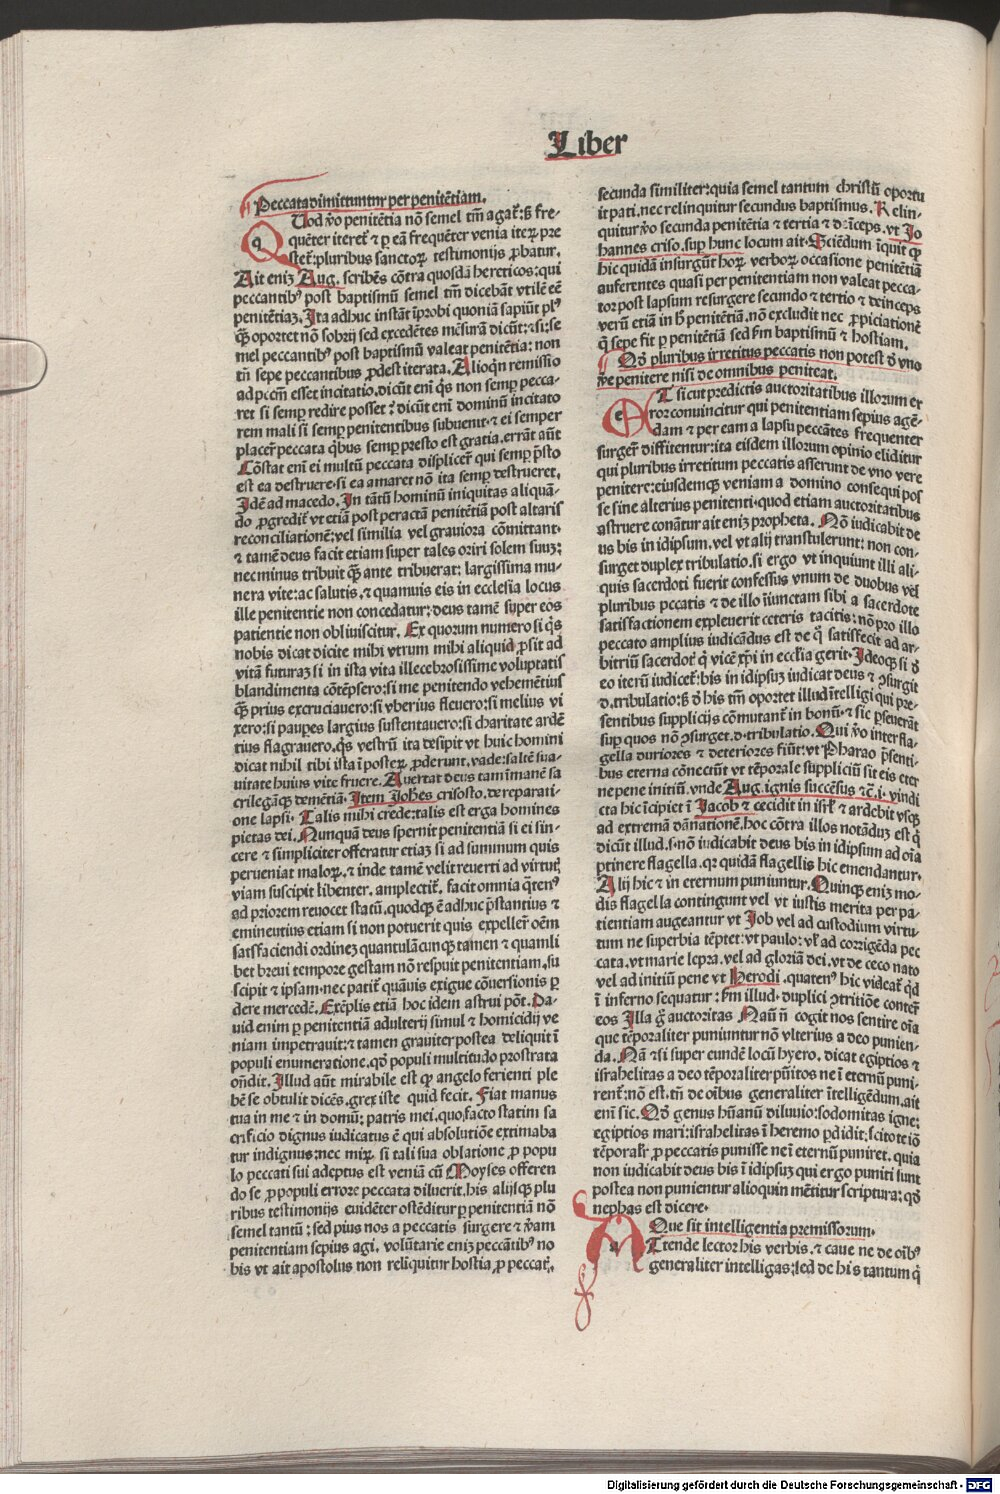 Liber
Peccata dimittuntur per penitētiam.
Uod v̄o penitētia nō semel tm̄ agat᷑: sꝫ fre-
quēter iteret᷑ ⁊ ꝑ eā frequēter venia iteꝝ pre
stet᷑: pluribus sanctoꝝ testimonijs ꝓbatur.
Ait eniꝫ Aug. scribēs cōtra quosdā hereticos: qui
peccantibꝰ post baptismū semel tm̄ dicebāt vtilē eē
penitētiaꝫ. Ita adhuc instāt īprobi quoniā sapiūt plꝰ
q̄ꝫ oportet nō sobrij sed excedētes mēsurā dicūt: ⁊ si: se
mel peccantibꝰ post baptismū valeat penitētia: non
tn̄ sepe peccantibus ꝓdest iterata. Alioqn̄ remissio
ad pccm̄ esset incitatio. dicūt enī q̄s non semꝑ pecca-
ret si semꝑ redire posset ? dicūt enī dominū incitato
rem mali si semꝑ penitentibus subuenit· ⁊ ei semper
placer᷑ peccata qͥbus semꝑ presto est gratia. errāt aūt
Cōstat enī ei multū peccata displicer᷑ qui semꝑ p̄sto
est ea destruere· si ea amaret nō ita semꝑ destrueret.
Idē ad macedo. In tātū hominū iniquitas aliquā-
do ꝓgredit᷑ vt etiā post peractā penitētiā post altaris
reconciliationē: vel similia vel grauiora cōmittant·
⁊ tamē deus facit etiam super tales oriri solem suuꝫ:
nec minus tribuit q̄ꝫ ante tribuerat: largissima mu-
nera vite: ac salutis. ⁊ quamuis eis in ecclesia locus
ille penitentie non concedatur: deus tamē super eos
patientie non obliuiscitur. Ex quorum numero si q̄s
nobis dicat dicite mihi vtrum mihi aliquid ꝓsit ad
vitā futuraꝫ si in ista vita illecebrosissime voluptatis
blandimenta cōtēpsero: si me penitendo vehemētius
q̄ꝫ prius excruciauero: si vberius fleuero: si melius vi
xero: si pauꝑes largius sustentauero: si charitate ardē
tius flagrauero. q̄s vestrū ita desipit vt huic homini
dicat nihil tibi ista ī posteꝝ ꝓderunt. vade: saltē sua-
uitate huius vite fruere. Auertat deus tam īmanē sa
crilegāqꝫ demētiā. Item Johēs crisosto. de reparati-
one lapsi· Talis mihi crede: talis est erga homines
pietas dei. Nunquā deus spernit penitentiā si ei sin-
cere ⁊ simpliciter offeratur etiaꝫ si ad summum quis
perueniat maloꝝ. ⁊ inde tamē velit reuerti ad virtut᷑
viam suscipit libenter. amplectit᷑. facit omnia q̄tenꝰ
ad priorem reuocet statū. quodqꝫ ē adhuc p̄stantius ⁊
eminentius etiam si non potuerit quis expeller᷑ oēm
satisfaciendi ordineꝫ quantulācunqꝫ tamen ⁊ quamli
bet breui tempore gestam nō respuit penitentiam. su
scipit ⁊ ipsam· nec patit᷑ quāuis exigue cōuersionis ꝑ
dere mercedē. Exēplis etiā hoc idem astrui pōt. Da-
uid enim ꝑ penitentiā adulterij simul ⁊ homicidij ve
niam impetrauit: ⁊ tamen grauiter postea deliquit ī
populi enumeratione. qd̄ populi multitudo prostrata
on̄dit. Illud aūt mirabile est qꝫ angelo ferienti ple
bē se obtulit dicēs. grex iste quid fecit. Fiat manus
tua in me ⁊ in domū: patris mei. quo. facto statim sa
crificio dignus iudicatus ē qui absolutiōe extimaba
tur indignus: nec miꝝ. si tali sua oblatione ꝓ popu
lo peccati sui adeptus est veniā cū Moyses offeren
do se ꝓ populi errore peccata diluerit. his alijsqꝫ plu
ribus testimonijs euidēter ostēditur ꝑ penitentiā nō
semel tantū: sed pius nos a peccatis surgere ⁊ v̄am
penitentiam sepius agi. volūtarie eniꝫ peccātibꝰ no
bis vt ait apostolus non reliquitur hostia ꝓ peccat᷑.
secunda similiter: quia semel tantum christū oportu
it pati. nec relinquitur secundus baptismus. Relin-
quitur v̄o secunda penitētia ⁊ tertia ⁊ d:īceps. vt Jo
hannes criso. suꝑ hunc locum ait. Sciēdum īquit qꝫ
hic quidā insurgūt hoꝝ verboꝝ occasione penitētiā
auferentes quasi per penitentiam non valeat pecca-
tor post lapsum resurgere secundo ⁊ tertio ⁊ deinceps
verū etiā in hͦ penitētiā. nō excludit nec ꝓpiciationē
q̄ sepe fit ꝑ penitētiā sed ẜm baptismū ⁊ hostiam.
Qd̄ pluribus irretitus peccatis non potest d̄ vno
v̄e penitere nisi de omnibus peniteat.
T sicut predictis auctoritatibus illorum er
ror conuincitur qui penitentiam sepius agē-
dam ⁊ per eam a lapsu peccātes frequenter
surger᷑ diffitentur: ita eisdem illorum opinio eliditur
qui pluribus irretitum peccatis asserunt de vno vere
penitere: eiusdemqꝫ veniam a domino consequi pos
se sine alterius penitenti· quod etiam auctoritatibus
astruere conātur ait eniꝫ propheta. Nō iudicabit de
us bis in idipsum. vel vt alij transtulerunt: non con-
surget duplex tribulatio. si ergo vt inquiunt illi ali-
quis sacerdoti fuerit confessus vnum de duobus vel
pluribus pccatis ⁊ de illo īiunctam sibi a sacerdote
satisfactionem expleuerit ceteris tacitis: nō pro illo
peccato amplius iudicādus est de q̊ satisfecit ad ar-
bitriū sacerdot᷑ q̄ vicē xp̄i in eccl̄ia gerit. Ideoqꝫ si d̄
eo iterū iudicet᷑: bis in idipsuꝫ iudicat deus ⁊ ꝯsurgit
d. tribulatio: sꝫ d̄ his tm̄ oportet illud ītelligi qui pre-
sentibus supplicijs cōmutant᷑ in bonū· ⁊ sic ꝑseuerāt
suꝑ quos nō ꝯsurget. d· tribulatio. Qui v̄o inter fla-
gella duriores ⁊ deteriores fiūt: vt Pharao p̄senti-
bus eterna cōnectūt vt tēporale suppliciū sit eis eter
ne pene initiū. vnde Aug. ignis succēsus ⁊c̄. i. vindi
cta hic īcipiet ī Jacob ⁊ cecidit in isrl̄ ⁊ ardebit vsqꝫ
ad extremā dānationē. hoc cōtra illos notādꝫ est q̄
dicūt illud. s. nō iudicabit deus bis in idipsum ad oīa
ꝑtinere flagella. qꝛ quidā flagellis hic emendantur·
Alij hic ⁊ in eternum puniuntur. Quinqꝫ eniꝫ mo-
dis flagella contingunt vel vt iustis merita per pa-
tientiam augeantur vt Job vel ad custodium virtu
tum ne superbia tēptet: vt paulo: vl̄ ad corrigēda pec
cata. vt marie lepra. vel ad gloriā dei. vt de ceco nato
vel ad initiū pene vt Herodi .quatenꝰ hic videat᷑ qd̄
ī inferno sequatur: ẜm illud· duplici ꝯtritiōe conter᷑
eos Illa q̄ auctoritas Naū n̄ cogit nos sentire oīa
que tēporaliter puniuntur nō vlterius a deo punien-
da. Nā ⁊ si super eundē locū hyero. dicat egiptios ⁊
israhelitas a deo tēporaliter pūitos ne ī eternū puni-
rent᷑: nō est. tn̄ de oībus generaliter ītelligēdum. ait
enī sic. Qd̄ genus hūanū diluuio: sodomitas igne:
egiptios mari: israhelitas ī heremo ꝑdidit: scitote iō
tēporalr᷑ ꝓ peccatis punisse ne ī eternū puniret. quia
non iudicabit deus bis ī idipsuꝫ qui ergo puniti sunt
postea non punientur alioquin mētitur scriptura: qd̄
nephas est dicere·
Que sit intelligentia premissorum·
Ttende lector his verbis. ⁊ caue ne de oībꝰ
generaliter intelligas: sed de his tantum q̄
Digitalisierung gefördert durch die Deutsche Forschungsgemeinschaft - DFG